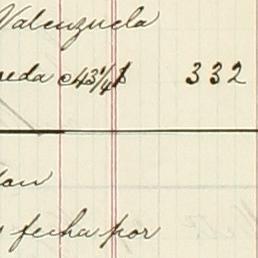 Valenzuela
reda c43¼ $ 332
fecha por